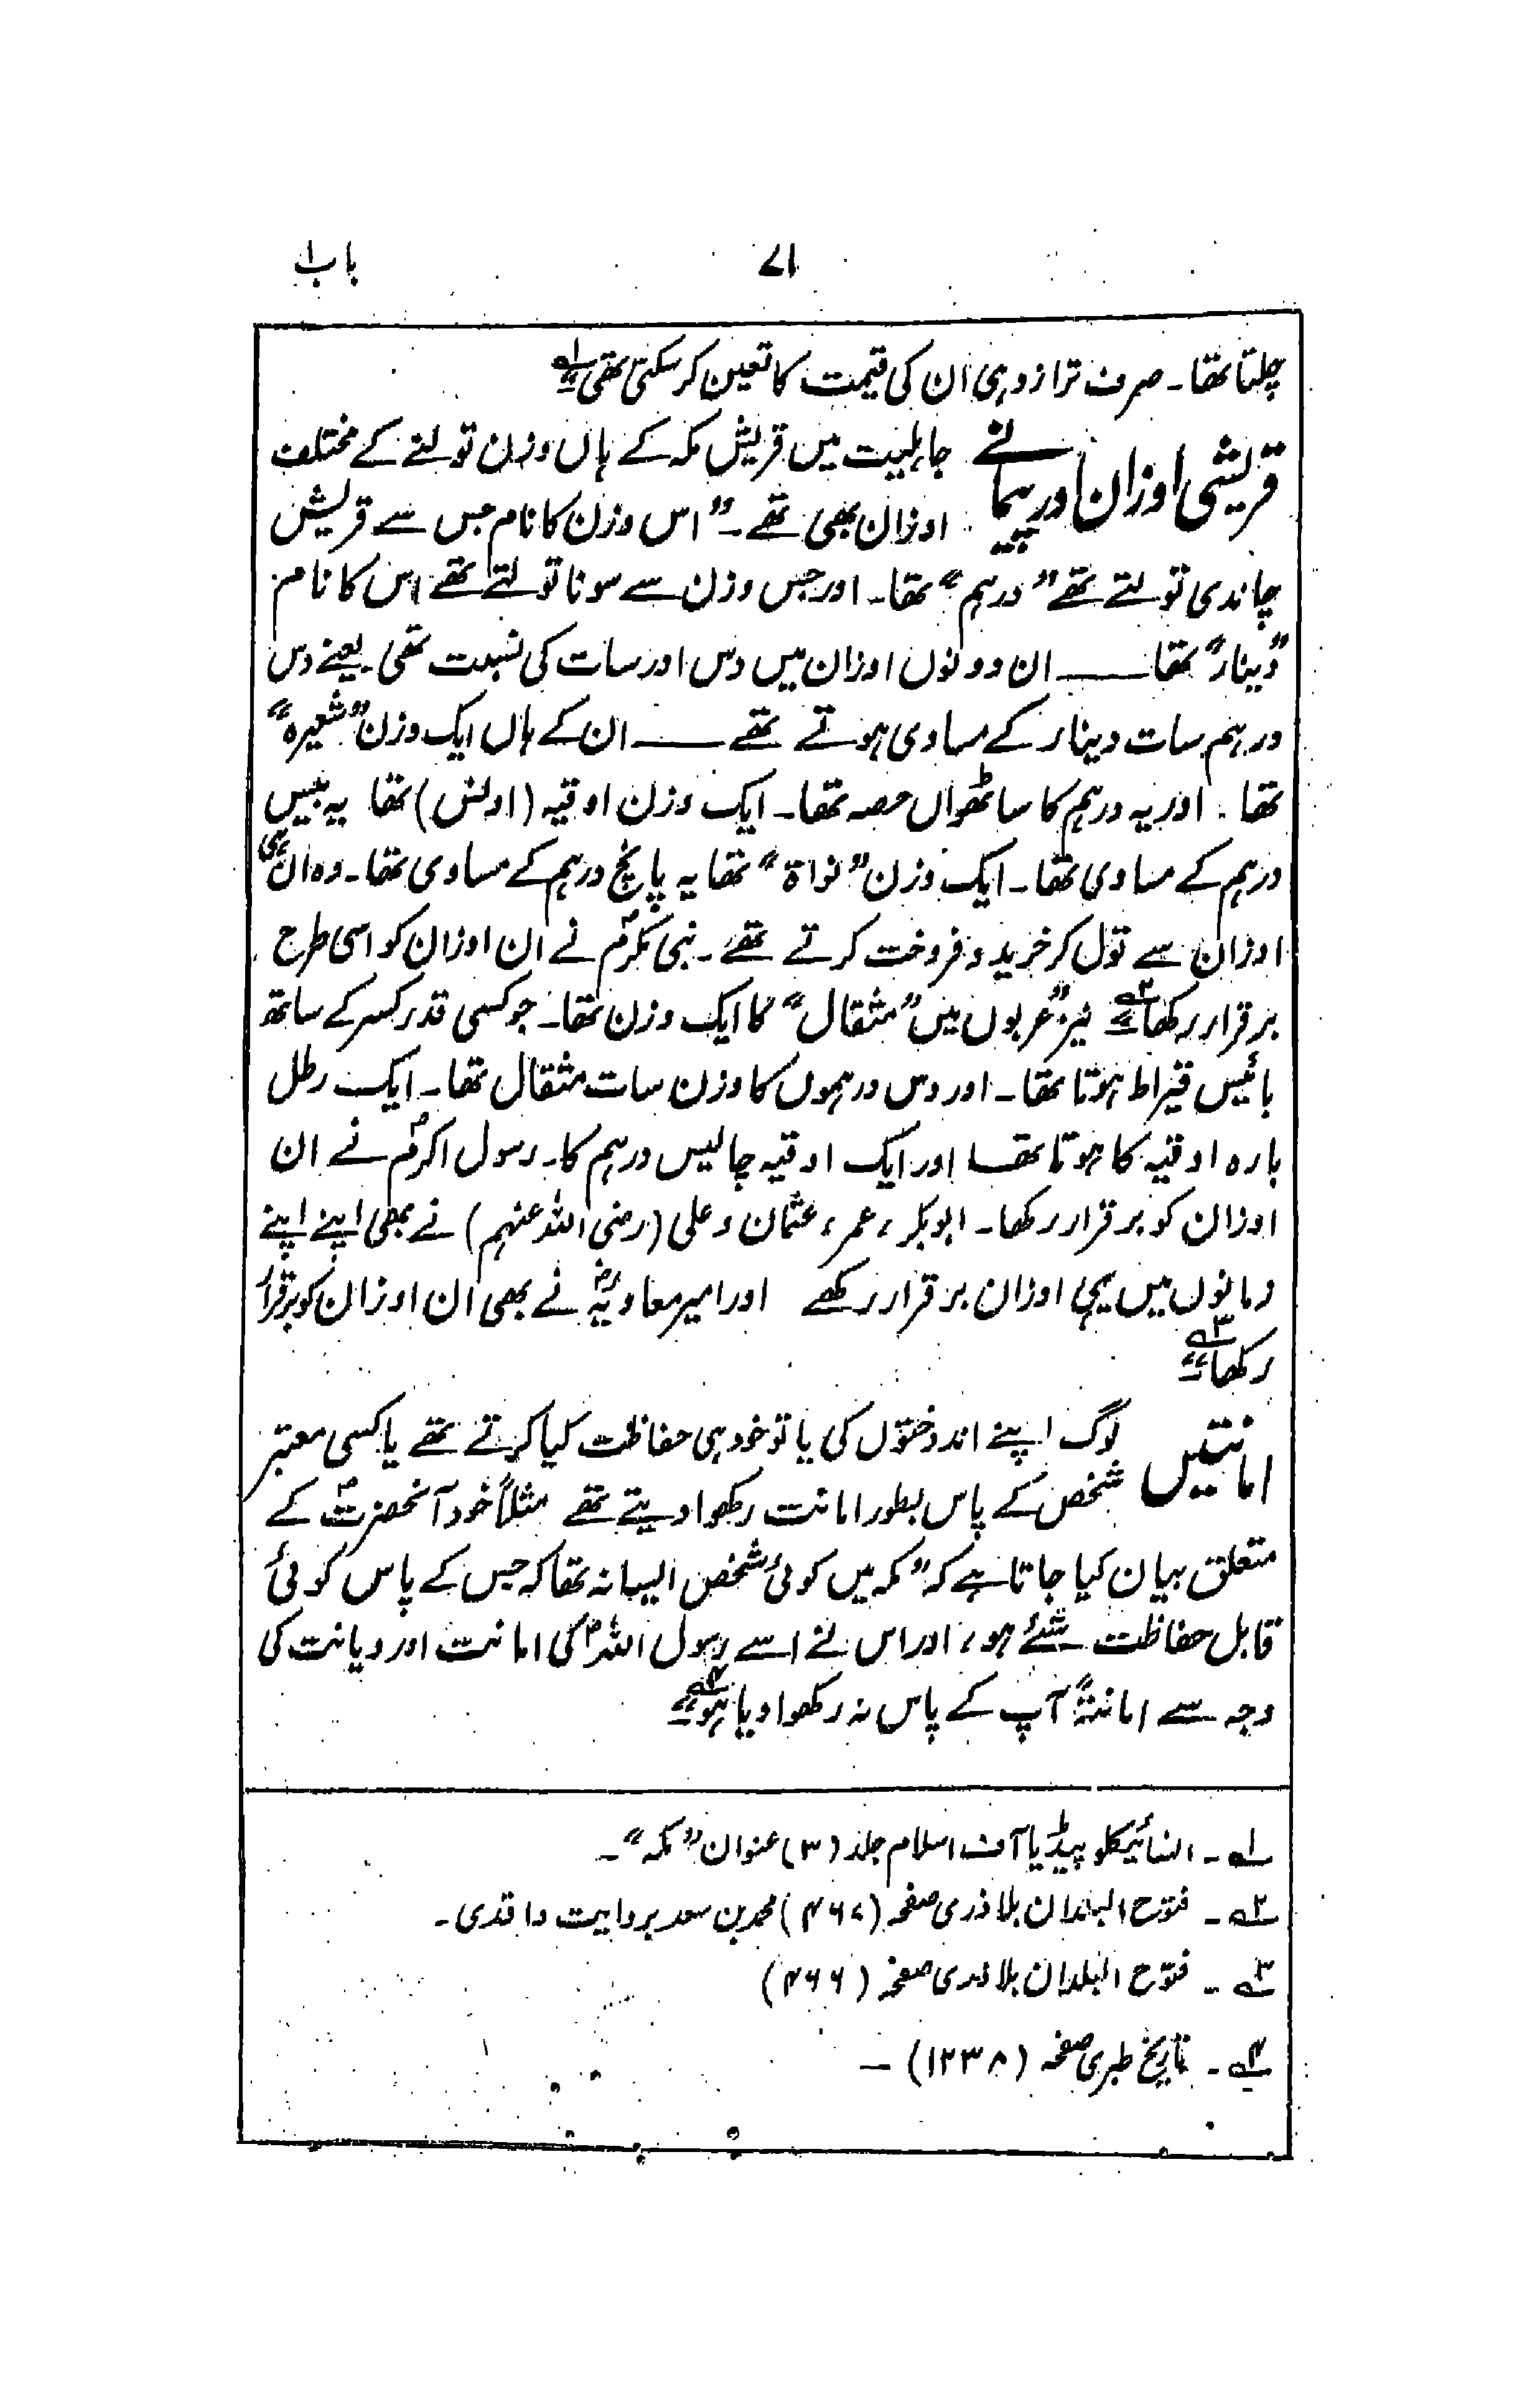 باب ۱
۷۱
چلتا تھا۔ صرف ترازو ہی ان کی قیمت کا تعین کر سکتی تھی ۱؎
قریشی اوزان اور پیمانے
جاہلیت میں قریش مکہ کے ہاں وزن تولنے کے مختلف
اوزان بھی تھے۔ "اس وزن کا نام جس سے قریش
چاندی تولتے تھے "درہم" تھا۔ اور جس وزن سے سونا تولتے تھے اس کا نام
"دینار" تھا ـــــ ان دونوں اوزان میں دس اور سات کی نسبت تھی۔ یعنے دس
درہم سات دینار کے مساوی ہوتے تھے ـــــ ان کے ہاں ایک وزن "شعیرہ"
تھا۔ اور یہ درہم کا ساٹھواں حصہ تھا۔ ایک وزن اوقیہ (اونس) تھا یہ چالیس
درہم کے مساوی تھا۔ ایک وزن "نواۃ" تھا یہ پانچ درہم کے مساوی تھا۔ وہ ان ہی
اوزان سے تول کر خرید و فروخت کرتے تھے۔ نبی مکرمؐ نے ان اوزان کو اسی طرح
برقرار رکھا" ۲؎ نیز "عربوں میں "مثقال" کا ایک وزن تھا۔ جو کسی قدر کسر کے ساتھ
بائیس قیراط ہوتا تھا۔ اور دس درہموں کا وزن سات مثقال تھا۔ ایک رطل
بارہ اوقیہ کا ہوتا تھا اور ایک اوقیہ چالیس درہم کا۔ رسول اکرمؐ نے ان
اوزان کو برقرار رکھا۔ ابوبکر، عمر، عثمان و علی (رضی اللہ عنہم) نے بھی اپنے اپنے
زمانوں میں یہی اوزان برقرار رکھے اور امیر معاویہؓ نے بھی ان اوزان کو برقرار
رکھا" ۳؎
امانتیں
لوگ اپنے اندوختوں کی یا تو خود ہی حفاظت کیا کرتے تھے یا کسی معتبر
شخص کے پاس بطور امانت رکھوا دیتے تھے مثلاً خود آنحضرتؐ کے
متعلق بیان کیا جاتا ہے کہ "مکہ میں کوئی شخص ایسا نہ تھا کہ جس کے پاس کوئی
قابل حفاظت شئے ہو، اور اس نے اسے رسول اللہؐ کی امانت اور دیانت کی
وجہ سے امانتہً آپ کے پاس نہ رکھوا دیا ہو" ۴؎
۱؎ ۔ انسائیکلو پیڈیا آف اسلام جلد (۳) عنوان "مکہ"۔
۲؎ ۔ فتوح البلدان بلاذری صفحہ (۴۶۷) محمد بن سعد بروایت واقدی۔
۳؎ ۔ فتوح البلدان بلاذری صفحہ (۴۶۶)
۴؎ ۔ تاریخ طبری صفحہ (۱۲۳۸) ۔